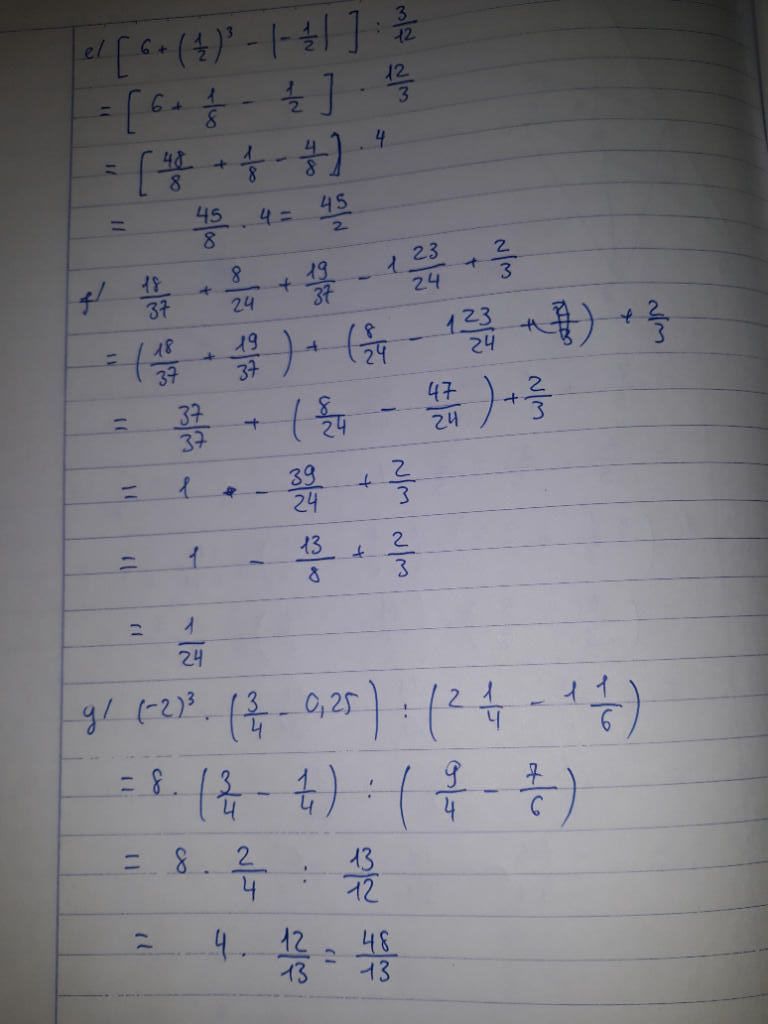 e/ [ 6 + (1/2)³ - |-1/2| ] : 3/12
= [ 6 + 1/8 - 1/2 ] . 12/3
= [ 48/8 + 1/8 - 4/8 ] . 4
= 45/8 . 4 = 45/2
f/ 18/37 + 8/24 + 19/37 - 1 23/24 + 2/3
= ( 18/37 + 19/37 ) + ( 8/24 - 1 23/24 ) + 2/3
= 37/37 + ( 8/24 - 47/24 ) + 2/3
= 1 - 39/24 + 2/3
= 1 - 13/8 + 2/3
= 1/24
g/ (-2)³ . ( 3/4 - 0,25 ) : ( 2 1/4 - 1 1/6 )
= 8 . ( 3/4 - 1/4 ) : ( 9/4 - 7/6 )
= 8 . 2/4 : 13/12
= 4 . 12/13 = 48/13